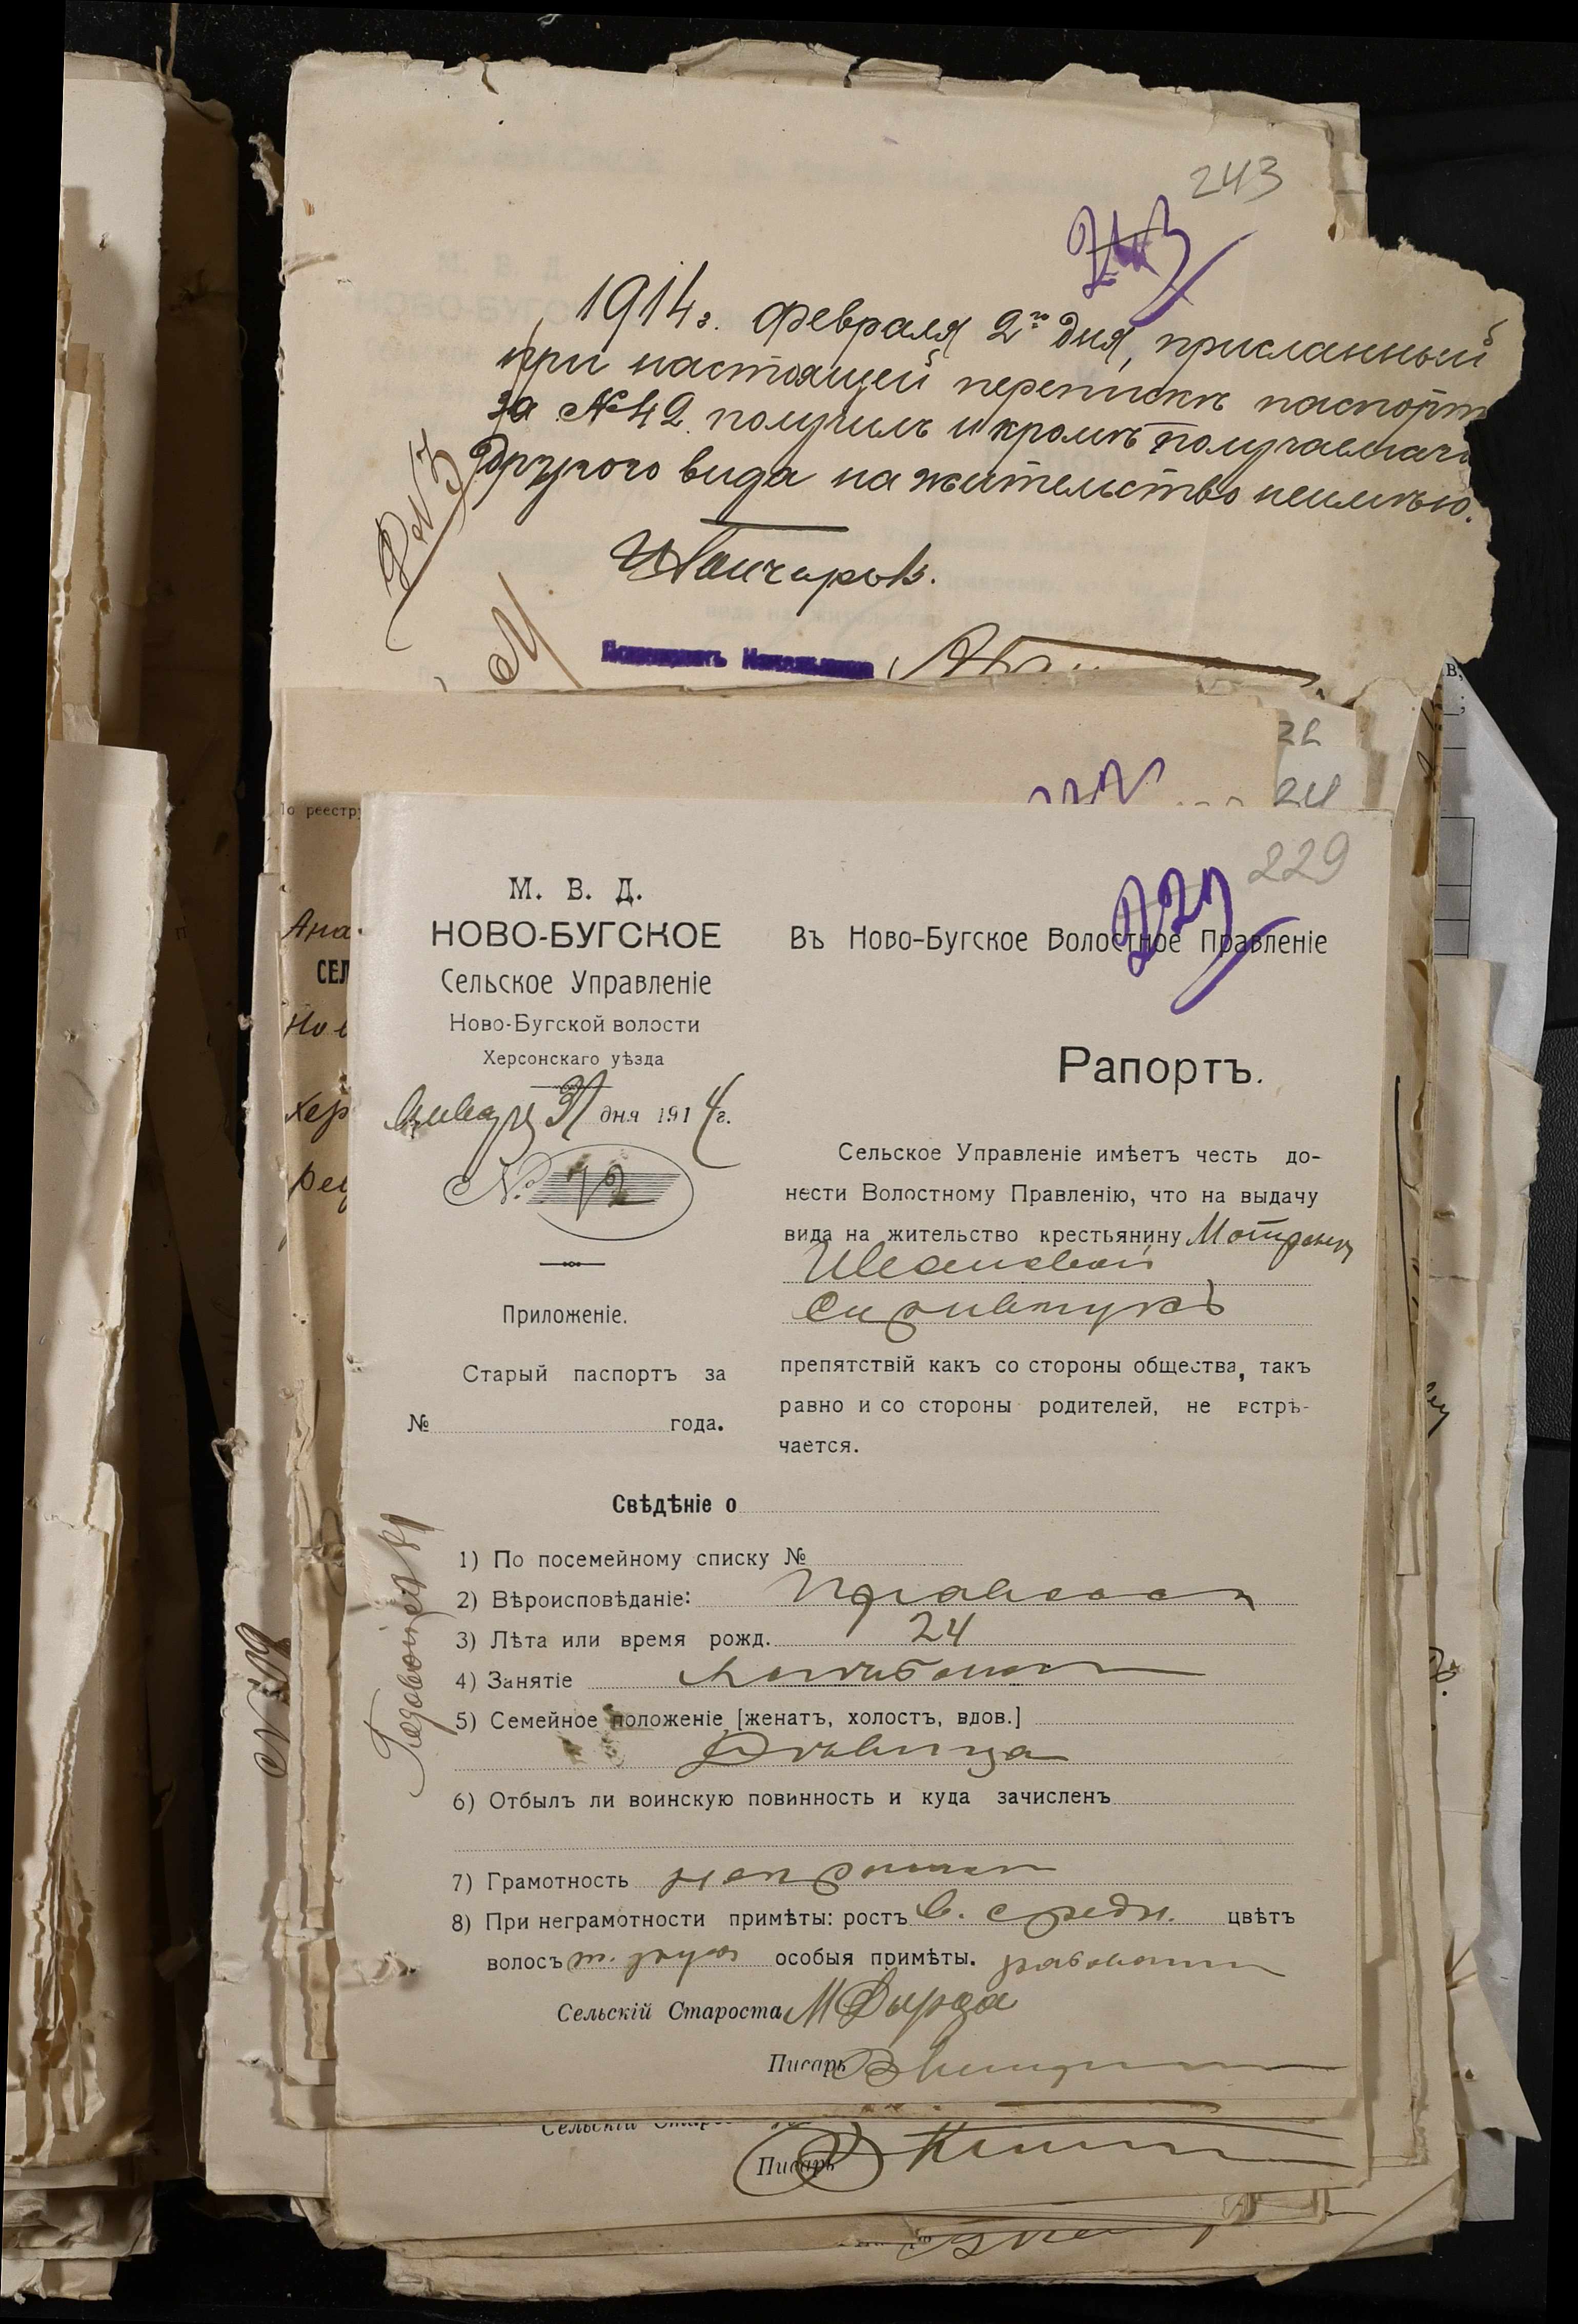 243
243
1914 г. Февраля 2го дня, присланный
при настоящей перепискѣ паспортъ
за № 42 получилъ и кромѣ получаемаго
другого вида на жительство неимѣю.
22
24
По реестр
Ана
СЕЛ
Хер
229
229
М. В. Д.
НОВО-БУГСКОЕ
Сельское Управленіе
Ново-Бугской волости
Херсонскаго уѣзда
Января 31 дня 1914 г.
№ 72
Приложеніе.
Старый паспортъ за
№ года.
Въ Ново-Бугское Волостное Правленіе
Рапортъ.
Сельское Управленіе имѣетъ честь до-
нести Волостному Правленію, что на выдачу
вида на жительство крестьянину Мотронѣ
Ивановой
препятствій какъ со стороны общества, такъ
равно и со стороны родителей, не встрѣ-
чается.
Свѣдѣніе о
1) По посемейному списку №
2) Вѣроисповѣданіе: Правосл
3) Лѣта или время рожд. 24
4) Занятіе
5) Семейное положеніе [женатъ, холостъ, вдов.]
Дѣвица
6) Отбылъ ли воинскую повинность и куда зачисленъ
7) Грамотность неграмот
8) При неграмотности примѣты: ростъ в. средн. цвѣтъ
волосъ т. русые особыя примѣты.
Сельскій Староста М Дырда
Писарь
Годовой
№ 109
Сельскій Старос
Писарь